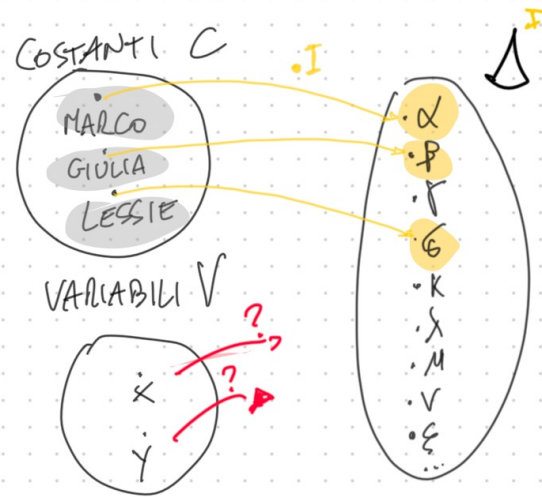 COSTANTI C
.I
I
Δ
MARCO
GIULIA
LESSIE
α
β
γ
K
λ
M
V
ξ
...
VARIABILI V
?
?
X
Y